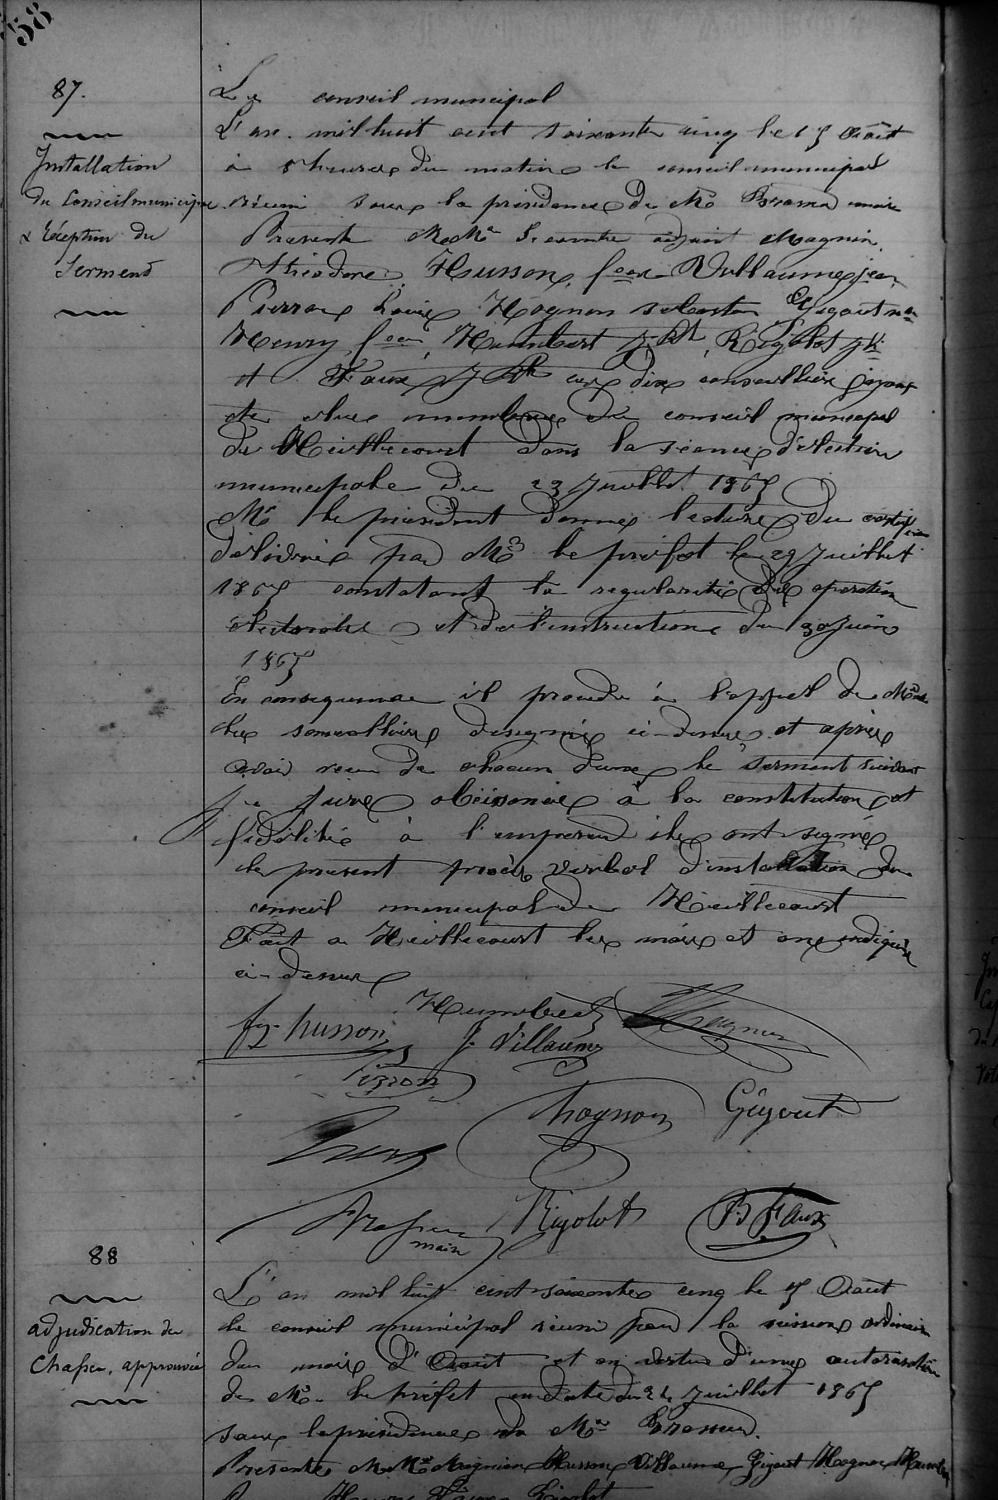 58
87.
Installation
du Conseil municipal
& Réception du
Serment
Le conseil municipal
L'an mil huit cent soixante cinq le 15 Août
à 8 heures du matin le conseil municipal
réuni sous la présidence de Mr maire
Présents M.Mrs Lecomte adjoint Magnien
Théodore, Husson, fçois Vuillaume jean
Pierron Louis Hognon sebastien Gigout
Henry fçois, Humbert Rigolot
et Faux J Bte dix conseillers
élus membres du conseil municipal
de Heillecourt dans la séance d'élection
municipale du 23 Juillet 1865
Mr le président donne lecture du
délivré par Mr le préfet le 29 Juillet
1865 constatant la regularité des operation
électorales et de l'instruction du 30 Juin
1865
En consequence il procede à l'appel de Mrs
les conseillers designés ci-dessus et après
avoir recu de chacun d'eux le serment suivant
je jure obéissance à la constitution et
fidélité à l'empereur ils ont signé
le present procès verbal d'installation du
conseil municipal de Heillecourt
Fait a Heillecourt les mois et an indiqués
ci-dessus
fçs husson Humbert Magnien
J. Villaume
Pierron
hognon Gigout
maire Rigolot B Faux
88
adjudication du
Chasse, approuvée
L'an mil huit cent soixante cinq le 15 Août
le conseil municipal réuni pour la session ordinaire
du mois d'Août et en vertu d'une autorisation
de Mr le préfet en date du 24 Juillet 1865
sous la présidence de Mr
Présents M.Mrs Magnien Husson Villaume Gigout Hognon Humbert
Henry Rigolot